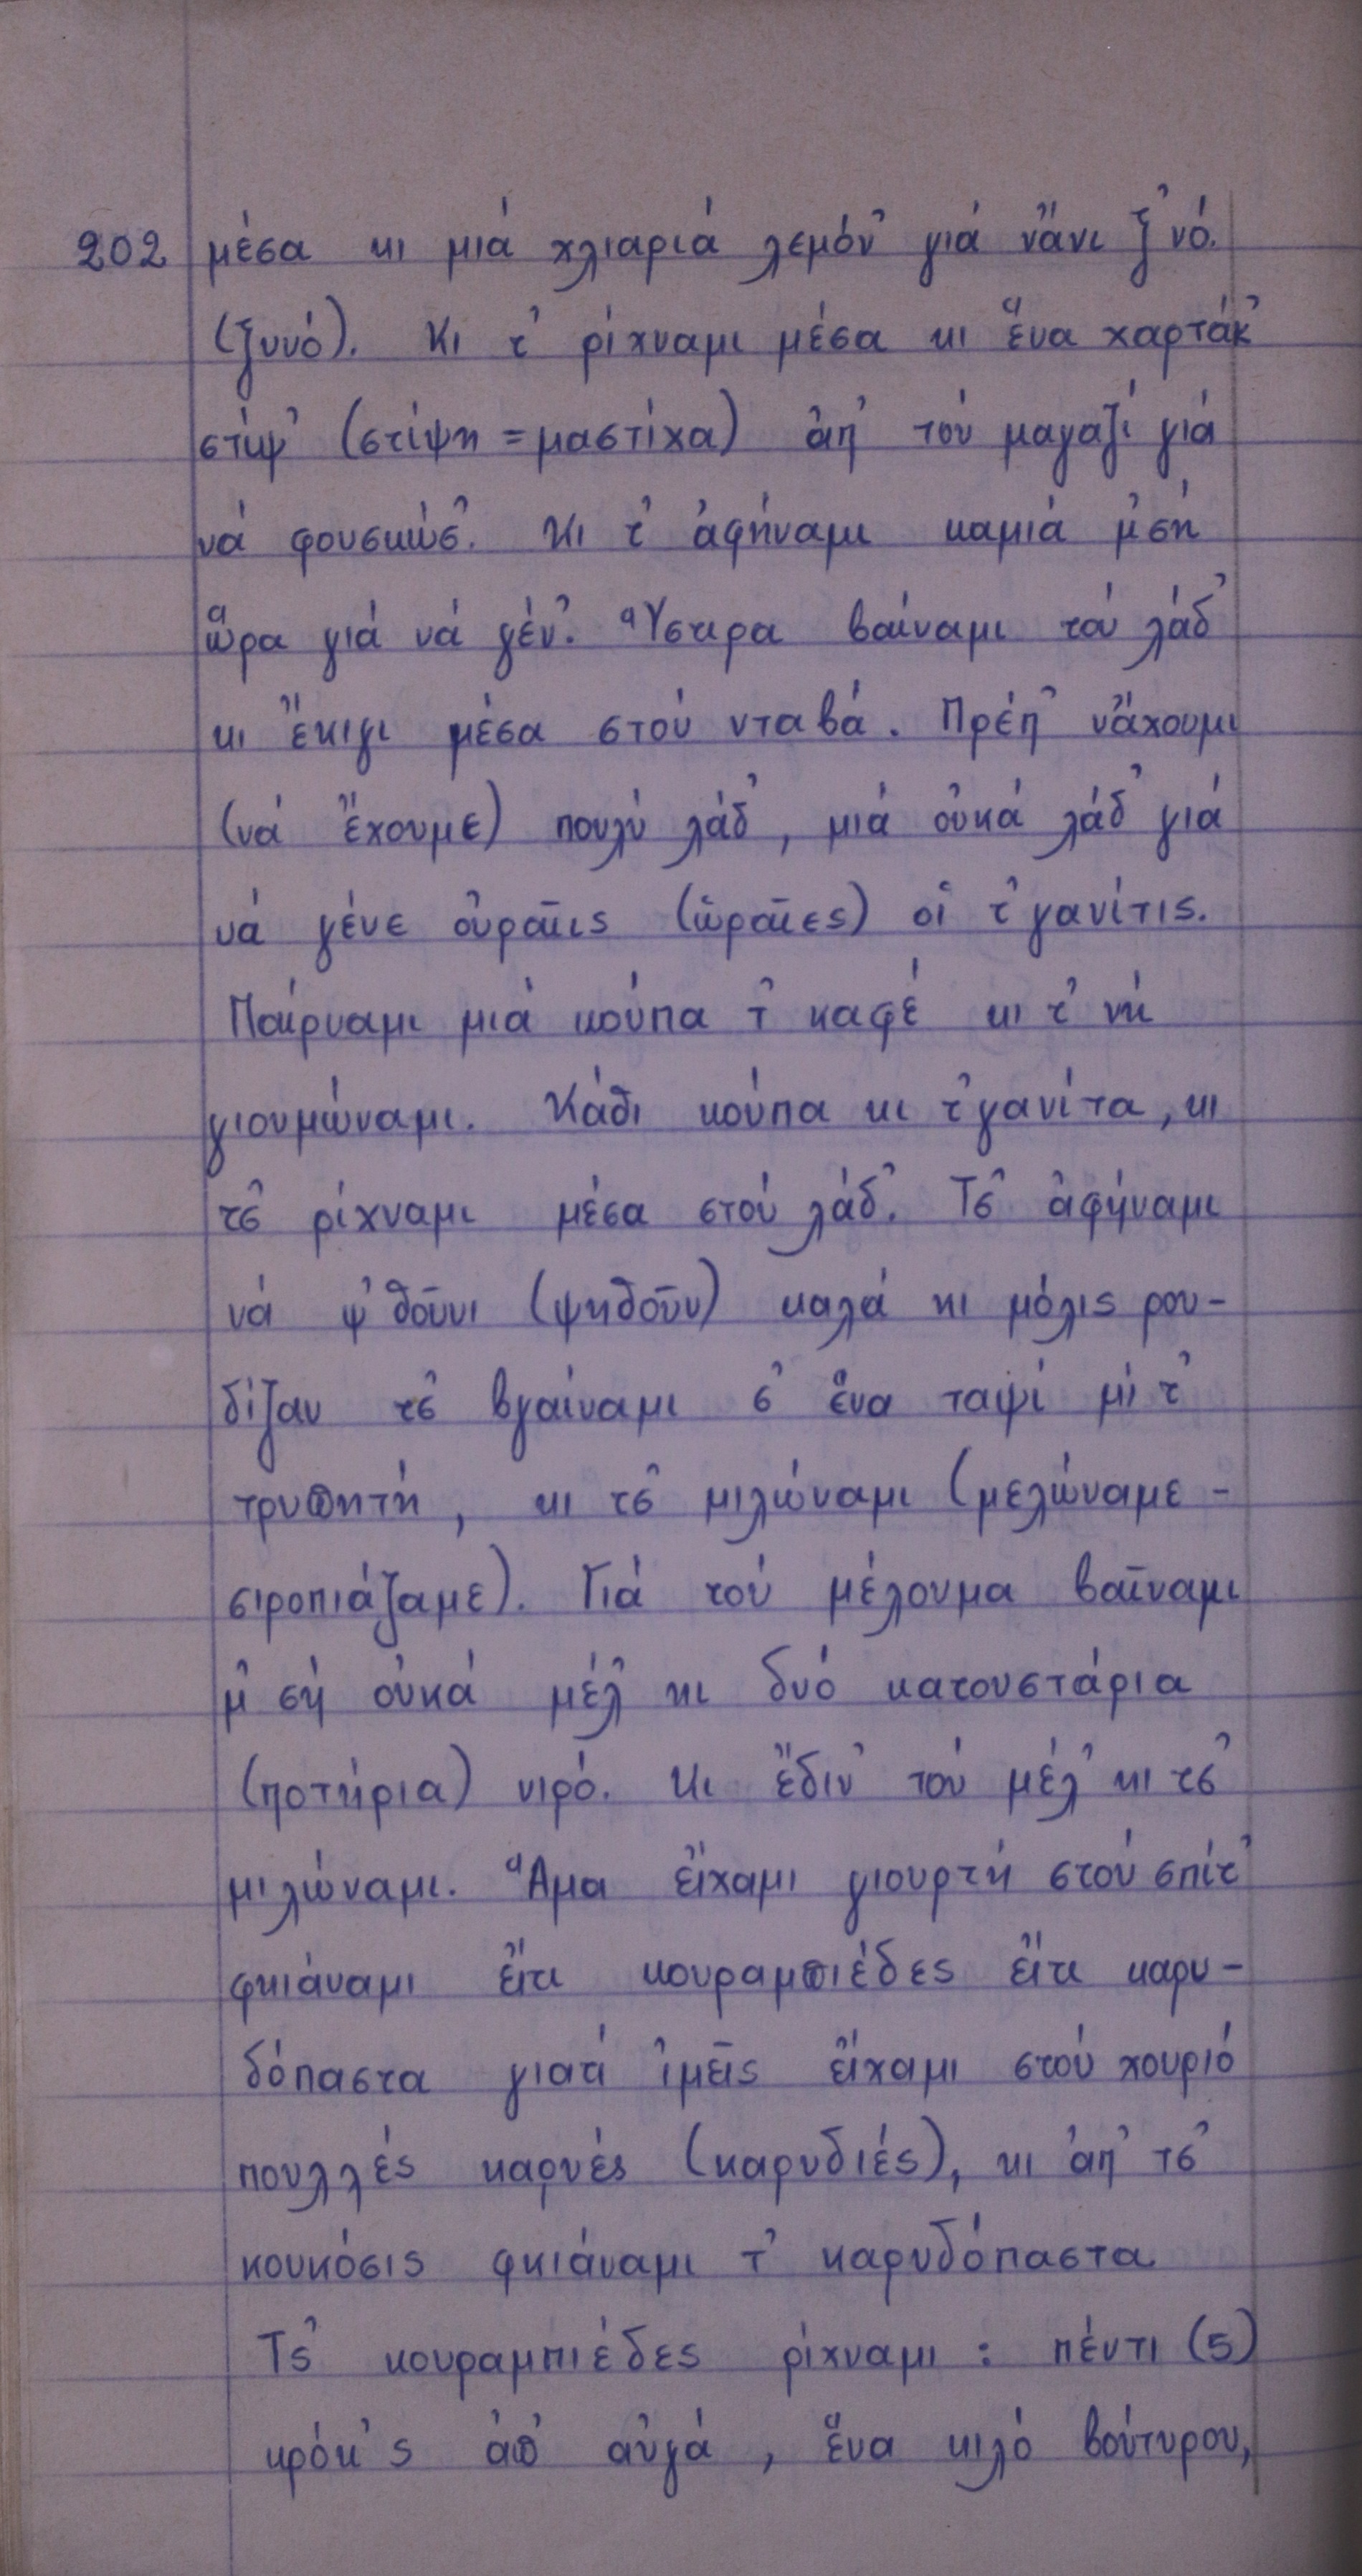 202 μέσα κι μιά χλιαριά λεμόν᾿ γιά νἄνι ξ᾿νό.
(ξυνό). Κι τ᾿ ρίχναμι μέσα κι ἕνα χαρτάκ᾿
στίψ᾿ (στίψη = μαστίχα) ἀπ᾿ τού μαγαζί γιά
νά φουσκώσ᾿. Κι τ᾿ ἀφήναμι καμιά μ᾿σή
ὥρα γιά νά γέν᾿. Ὕστιρα βαίναμι τού λάδ᾿
κι ἔκιγι μέσα στού νταβά. Πρέπ᾿ νἄχουμι
(νά ἔχουμε) πουλύ λάδ᾿, μιά οὐκά λάδ᾿ γιά
νά γένε οὐραῖις (ὡραῖες) οἱ τ᾿γανίτις.
Παίρναμι μιά κούπα τ᾿ καφέ κι τ᾿ νή
γιουμώναμι. Κάθι κούπα κι τ᾿γανίτα, κι
τσ᾿ ρίχναμι μέσα στού λάδ᾿. Τσ᾿ ἀφήναμι
νά ψ᾿θοῦνι (ψηθοῦν) καλά κι μόλις ρου-
δίζαν τσ᾿ βγαίναμι σ᾿ ἕνα ταψί μί τ᾿
τρυπητή, κι τσ᾿ μιλώναμι (μελώναμε -
σιροπιάζαμε). Γιά τού μέλουμα βαῖναμι
μ᾿σή οὐκά μέλ᾿ κι δυό κατουστάρια
(ποτήρια) νιρό. Κι ἔδιν᾿ τού μέλ᾿ κι τσ᾿
μιλώναμι. Ἅμα εἴχαμι γιουρτή στού σπίτ᾿
φκιάναμι εἴτι κουραμπιέδες εἴτι καρυ-
δόπαστα γιατί ἰμεῖς εἴχαμι στού χουριό
πουλλές καρυές (καρυδιές), κι ἀπ᾿ τσ᾿
κουκόσις φκιάναμι τ᾿ καρυδόπαστα
Τσ᾿ κουραμπιέδες ρίχναμι : πέντι (5)
κρόκ᾿ς ἀπ᾿ αὐγά, ἕνα κιλό βούτυρου,